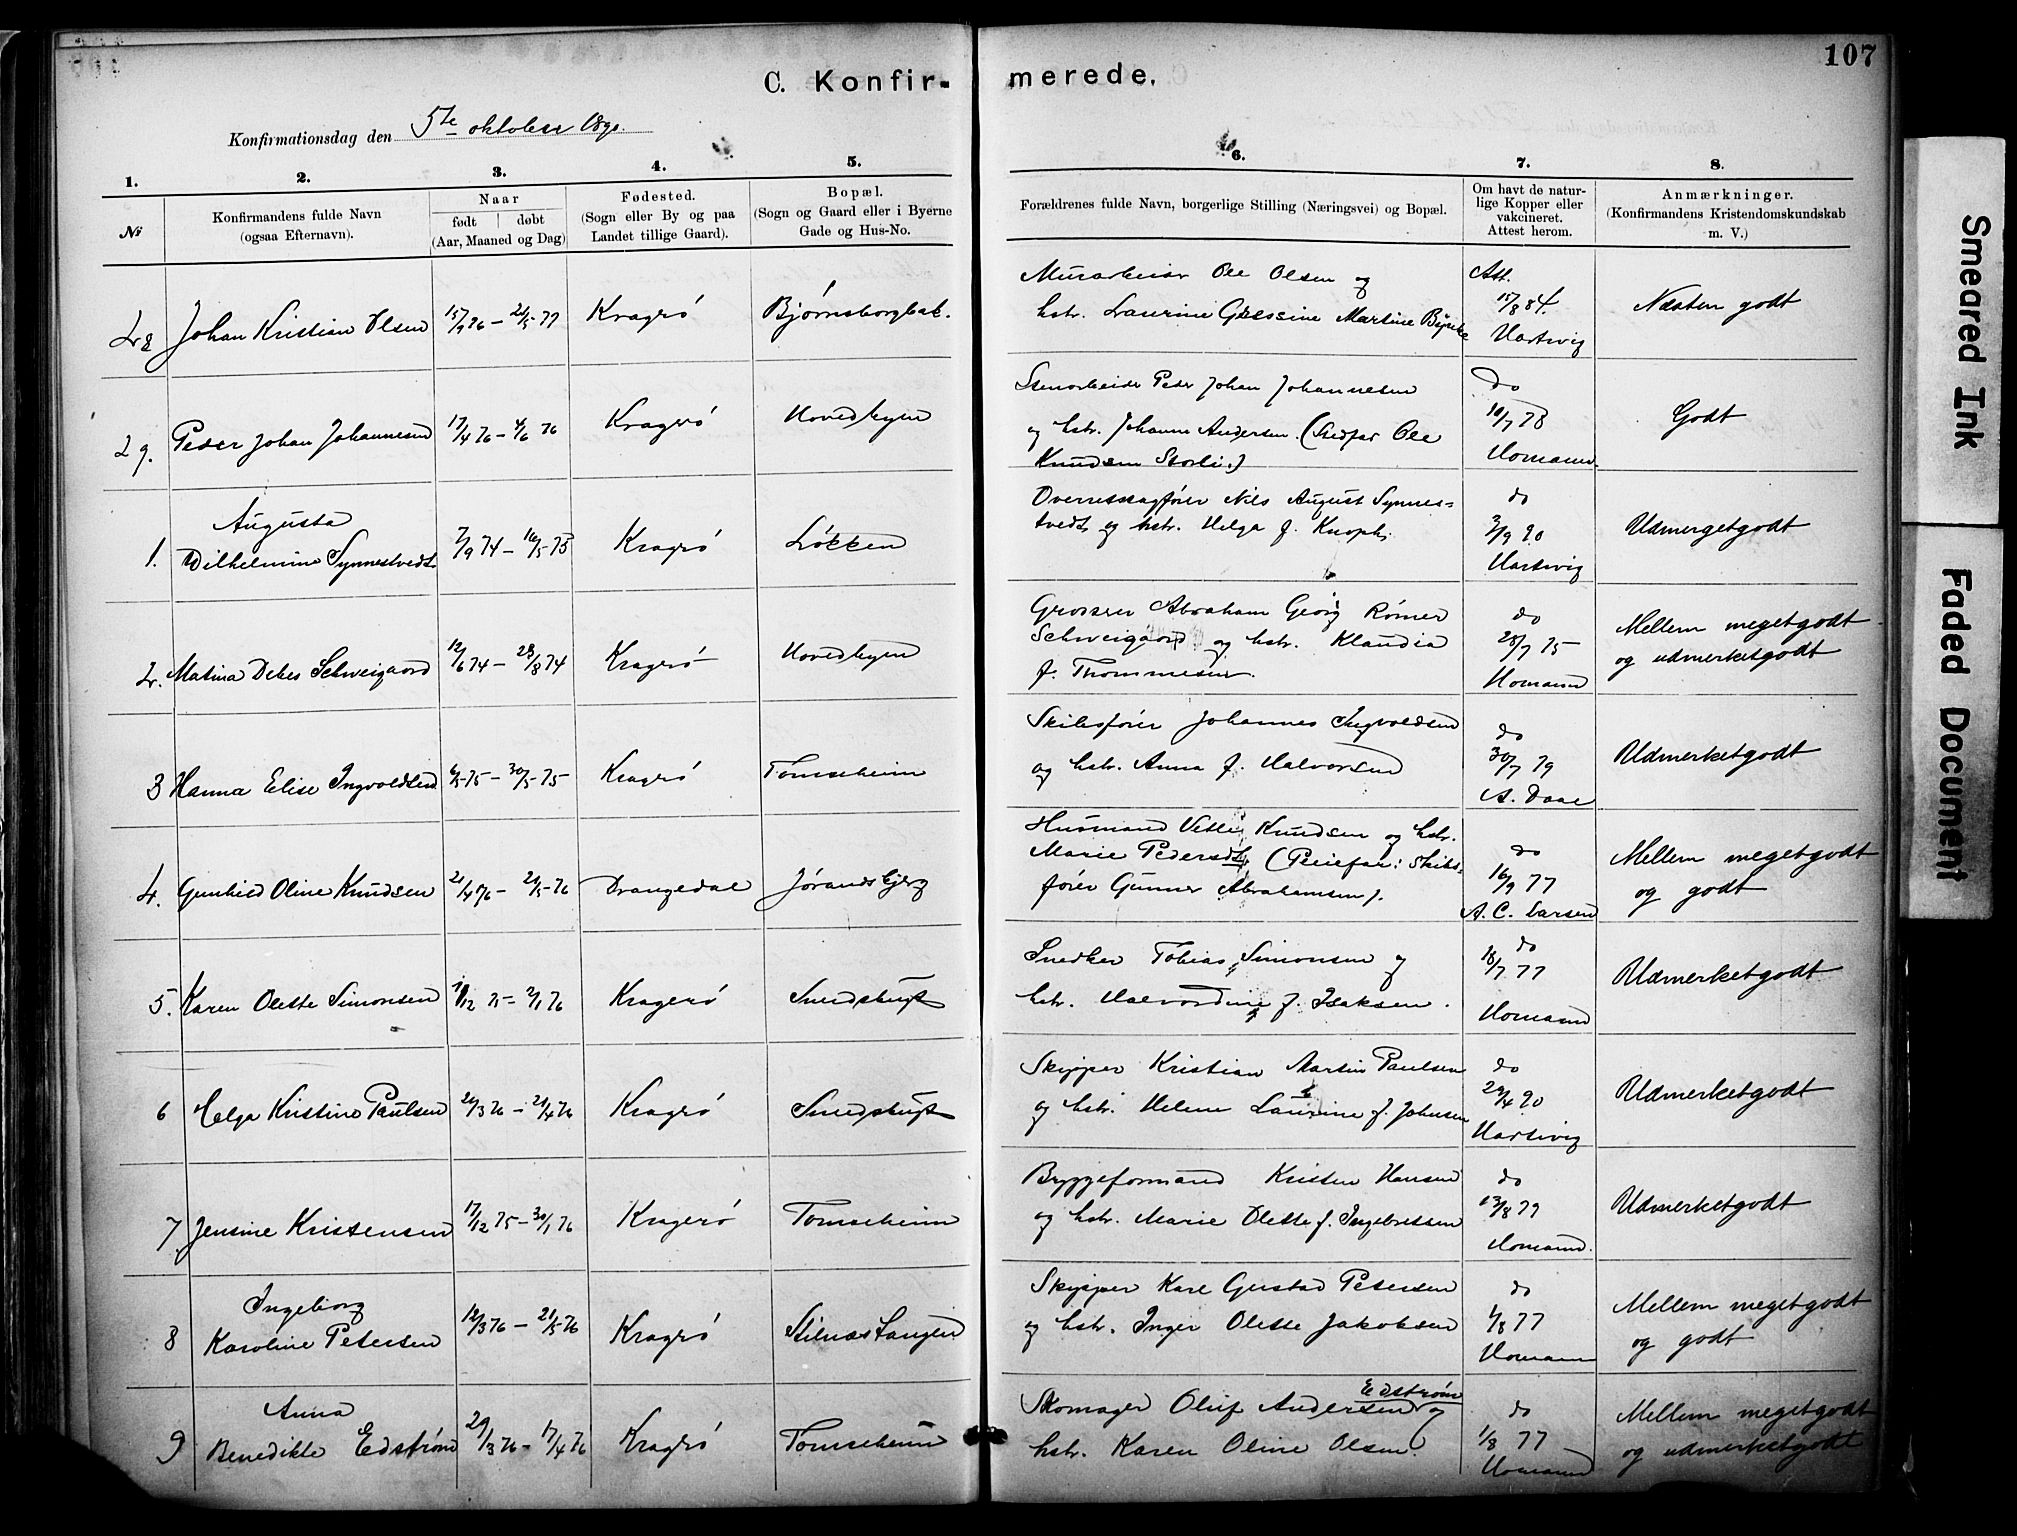 107
C. Konfir-
merede.
Konfirmationsdag den 5te oktober 1890.
1.
2.
3.
4.
5.
6.
7.
8.
№
Konfirmandens fulde Navn
(ogsaa Efternavn).
Naar
født | døbt
(Aar, Maaned og Dag)
Fødested.
(Sogn eller By og paa
Landet tillige Gaard).
Bopæl.
(Sogn og Gaard eller i Byerne
Gade og Hus-No.
Forældrenes fulde Navn, borgerlige Stilling (Næringsvei) og Bopæl.
Om havt de natur-
lige Kopper eller
vakcineret.
Attest herom.
Anmærkninger.
(Konfirmandens Kristendomskundskab
m. V.)
28 Johan Kristian Olsen
Kragerö
Bjørnsborgbak.
Murarbeider Ole Olsen og
hstr. Laurine Martine
Att.
15/8 84.
Hartvig
Næsten godt
29. Peder Johan Johannesen
17/4 76 – 4/6 76
Kragerö
Hovedbyen
Stenarbeider Peder Johan Johannesen
og hstr. Johanne Andersen. (Stedfar Ole
Knudsen Storli.)
do
10/7 78
Homann.
Godt
1. Augusta
Vilhelmine Synnestvedt
7/9 74 – 16/5 75
Kragerö
Løkken
Overretssagfører Nils August Synnes-
tvedt og hstr. Helga f. Knoph.
do
2/9 90
Hartvig
Udmerget godt
2. Matina Debes Schweigaard
12/6 74 – 23/8 74
Kragerö
Hovedbyen
Grosserer Abraham Georg Römer
Schweigaard og hstr. Klaudia
f. Thommesen.
do
28/7 75
Homann
Mellem megetgodt
og udmerketgodt
3 Hanna Elise Ingvoldsen
6/5 75 – 30/5 75
Kragerö
Tomseheim
Skibsfører Johannes Ingvoldsen
og hstr. Anna f. Halvorsen
do
30/7 79
A. Daae
Udmerketgodt
4. Gunhild Oline Knudsen
21/4 76 – 21/5 76
Drangedal
Jørandsbjerg
Husmand Vetle Knudsen og hstr.
Marie Pedersdt. (Pleiefar: Skibs-
fører Gunner Abrahamsen).
do
16/9 77
A. C. Larsen
Mellem megetgodt
og godt
5. Karen Olette Simonsen
11/12 75 – 2/1 76
Kragerö
Smedsbugt
Snedker Tobias Simonsen og
hstr. Halvordine f. Isaksen.
do
18/7 77
Homann
Udmerketgodt
6 Helga Kristine Paulsen
20/3 76 – 21/4 76
Kragerö
Smedsbugt
Skipper Kristian Martin Paulsen
og hstr. Helene Laurine f. Johnsen
do
29/4 90
Hartvig
Udmerketgodt
7 Jensine Kristensen
17/12 75 – 30/1 76
Kragerö
Tomseheim
Byggeformand Kristen Hansen
og hstr. Marie Olette f. Ingebretsen
do
13/8 79
Homann.
Udmerketgodt
8 Ingeborg
Karoline Petersen
12/3 76 – 21/5 76
Kragerö
Stilnæstangen
Skipper Karl Gustad Petersen
og hstr. Inger Olette Jakobsen
do
1/8 77
Homann
Mellem megetgodt
og godt
9 Anna
Benedikte Edström
29/3 76 – 17/4 76
Kragerö
Tomseheim
Edström
Skomager Oluf Andersen og
hstr. Karen Oline Olsen.
do
1/8 77
Homann
Mellem megetgodt
og udmerketgodt
Smeared Ink
Faded Document